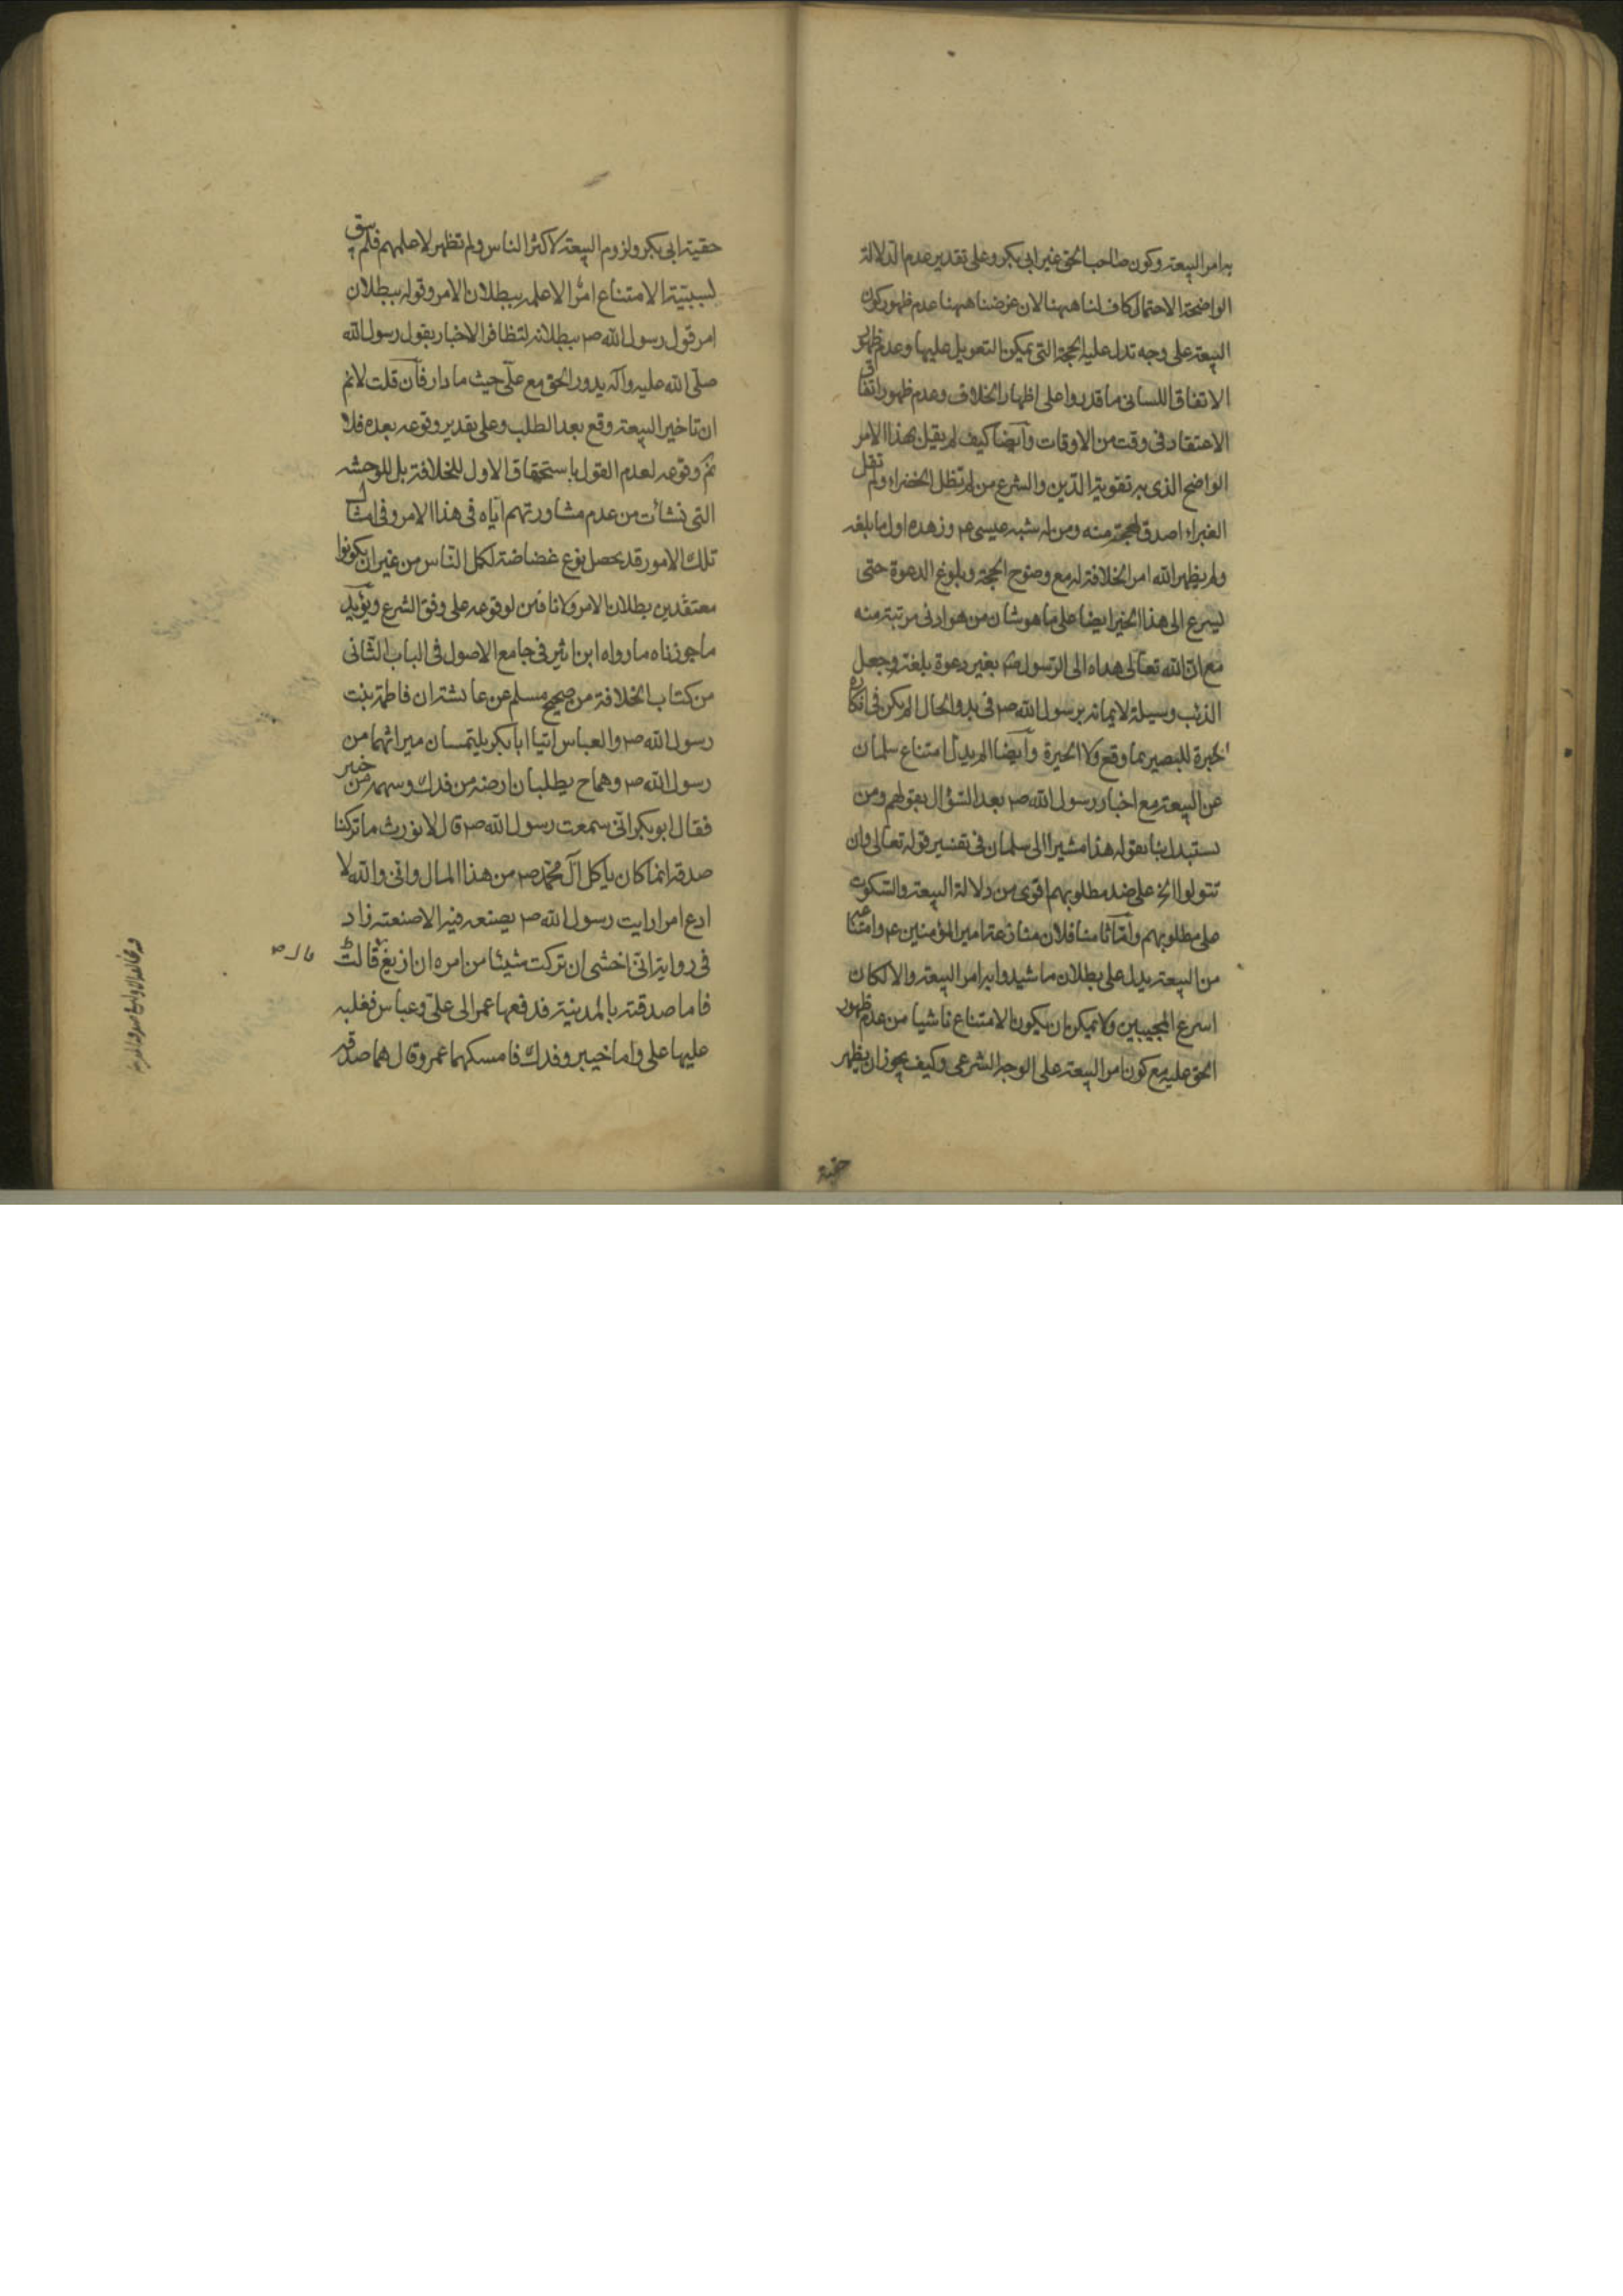 به امر البيعة وكون صاحب الحق غير ابى بكر وعلى تقدير عدم الدلالة
الواضحة الاحتمال كاف لنا ههنا لان غرضنا ههنا عدم ظهور كون
البيعة على وجه تدل عليه الحجة التى يمكن التعويل عليها وعدم ظهور
الاتفاق اللسانى ما قدروا على اظهار الخلاف وعدم ظهور اتفاق
الاعتقاد فى وقت من الاوقات وايضا كيف لم يقبل بهذا الامر
الواضح الذى به تقوية الدين والشرع من لم تظل الخضراء ولم تقل
الغبراء اصدق لهجة منه ومن له شبه عيسى ع وزهده اول ما بلغه
ولم يظهر الله امر الخلافة له مع وضوح الحجة وبلوغ الدعوة حتى
ليسرع الى هذا الخير ايضا على ما هو شان من هو ادنى مرتبة منه
مع ان الله تعالى هداه الى الرسول ص بغير دعوة بلغته وجعل
الذئب وسيلة لايمانه برسول الله ص فى بدو الحال لم يكن فى انكاره
خبرة للبصير بما وقع ولا الحيرة وايضا لم يدل امتناع سلمان
عن البيعة مع اخبار رسول الله ص بعد السؤال بقولهم ومن
يستبدل بنا بقوله هذا مشيرا الى سلمان فى تفسير قوله تعالى وان
تتولوا الخ على ضد مطلوبهم اقوى من دلالة البيعة والسكوت
على مطلوبهم واما ثامنا فلان منازعة امير المؤمنين ع وامتناعه
من البيعة يدل على بطلان ما شيدوا به امر البيعة والا لكان
اسرع المجيبين ولا يمكن ان يكون الامتناع ناشيا من عدم ظهور
الحق عليه مع كون امر البيعة على الوجه الشرعى وكيف يجوز ان يظهر
حقية
حقية ابى بكر ولزوم البيعة لاكثر الناس ولم تظهر لاعلمهم فلم يبق
لسببية الامتناع امر الا علمه ببطلان الامر وقوله ببطلان
امر قول رسول الله ص ببطلانه لتظافر الاخبار بقول رسول الله
صلى الله عليه وآله يدور الحق مع على حيث ما دار فان قلت لانم
ان تاخير البيعة وقع بعد الطلب وعلى تقدير وقوعه بعده فلا
نم وقوعه لعدم القول باستحقاق الاول للخلافة بل للوحشة
التى نشات من عدم مشاورتهم اياه فى هذا الامر وفى امثال
تلك الامور قد يحصل نوع غضاضة لكل الناس من غير ان يكونوا
معتقدين بطلان الامر ولا نافين لوقوعه على وفق الشرع ويؤيد
ما جوزناه ما رواه ابن اثير فى جامع الاصول فى الباب الثانى
من كتاب الخلافة من صحيح مسلم عن عائشة ان فاطمة بنت
رسول الله ص والعباس اتيا ابا بكر يلتمسان ميراثهما من
رسول الله ص وهما ح يطلبان ارضه من فدك وسهمه من خيبر
فقال ابو بكر انى سمعت رسول الله ص قال لا نورث ما تركنا
صدقة انما كان ياكل آل محمد ص من هذا المال وانى والله لا
ادع امرا رايت رسول الله ص يصنعه فيه الا صنعته زاد
فى رواية انى اخشى ان تركت شيئا من امره ان ازيغ قالت
فاما صدقته بالمدينة فدفعها عمر الى على وعباس فغلبه
عليها على واما خيبر وفدك فامسكهما عمر وقال هما صدقة